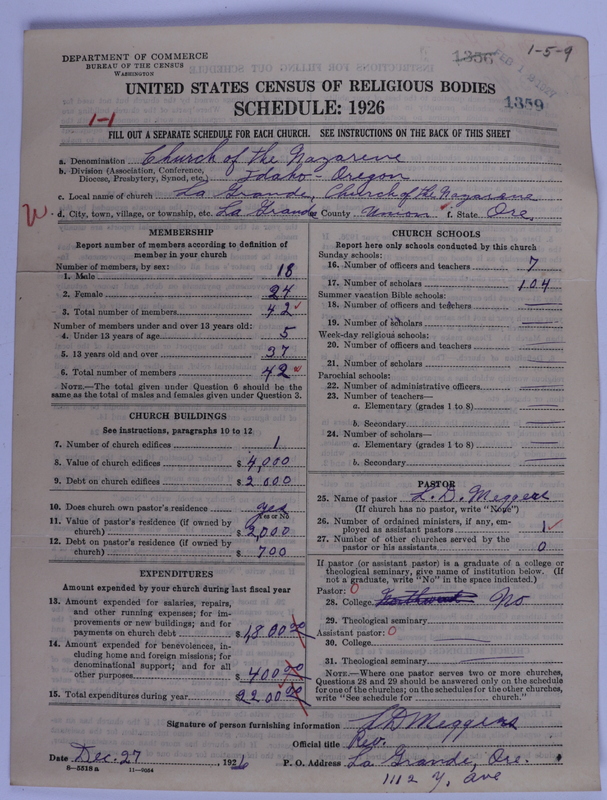 DEPARTMENT OF COMMERCE
BUREAU OF THE CENSUS
WASHINGTON
1356
1-5-9
1359
UNITED STATES CENSUS OF RELIGIOUS BODIES
SCHEDULE: 1926
1-1
FILL OUT A SEPARATE SCHEDULE FOR EACH CHURCH. SEE INSTRUCTIONS ON THE BACK OF THIS SHEET
a. Denomination Church of the Nazarene
b. Division (Association, Conference, Diocese, Presbytery, Synod, etc.) Idaho - Oregon
c. Local name of church La Grande, Church of the Nazarene
W. d. City, town, village, or township, etc. La Grande e. County Union f. State Ore.
MEMBERSHIP
Report number of members according to definition of member in your church
Number of members, by sex:
1. Male 18
2. Female 24
3. Total number of members 42
Number of members under and over 13 years old:
4. Under 13 years of age 5
5. 13 years old and over 37
6. Total number of members 42
NOTE.—The total given under Question 6 should be the
same as the total of males and females given under Question 3.
CHURCH BUILDINGS
See instructions, paragraphs 10 to 12
7. Number of church edifices 1
8. Value of church edifices $ 4,000
9. Debt on church edifices $ 2000
10. Does church own pastor's residence yes
Yes or No
11. Value of pastor's residence (if owned by
church) $ 2,000
12. Debt on pastor's residence (if owned by
church) $ 700
EXPENDITURES
Amount expended by your church during last fiscal year
13. Amount expended for salaries, repairs,
and other running expenses; for im-
provements or new buildings; and for
payments on church debt $ 1800 00
14. Amount expended for benevolences, in-
cluding home and foreign missions; for
denominational support; and for all
other purposes $ 400 00
15. Total expenditures during year $ 2200 00
CHURCH SCHOOLS
Report here only schools conducted by this church
Sunday schools:
16. Number of officers and teachers 7
17. Number of scholars 104
Summer vacation Bible schools:
18. Number of officers and teachers
19. Number of scholars
Week-day religious schools:
20. Number of officers and teachers
21. Number of scholars
Parochial schools:
22. Number of administrative officers
23. Number of teachers—
a. Elementary (grades 1 to 8)
b. Secondary
24. Number of scholars—
a. Elementary (grades 1 to 8)
b. Secondary
PASTOR
25. Name of pastor L. D. Meggers
(If church has no pastor, write "None")
26. Number of ordained ministers, if any, em-
ployed as assistant pastors 1
27. Number of other churches served by the
pastor or his assistants 0
If pastor (or assistant pastor) is a graduate of a college or
theological seminary, give name of institution below. (If
not a graduate, write "No" in the space indicated.)
Pastor: 0
28. College Northwest No
29. Theological seminary
Assistant pastor: 0
30. College
31. Theological seminary
NOTE.—Where one pastor serves two or more churches,
Questions 28 and 29 should be answered only on the schedule
for one of the churches; on the schedules for the other churches,
write "See schedule for church."
Signature of person furnishing information L D Meggers
Official title Rev.
Date Dec. 27, 1926 P. O. Address La Grande, Ore.
8-5518a 11-9054
1112 Y. ave